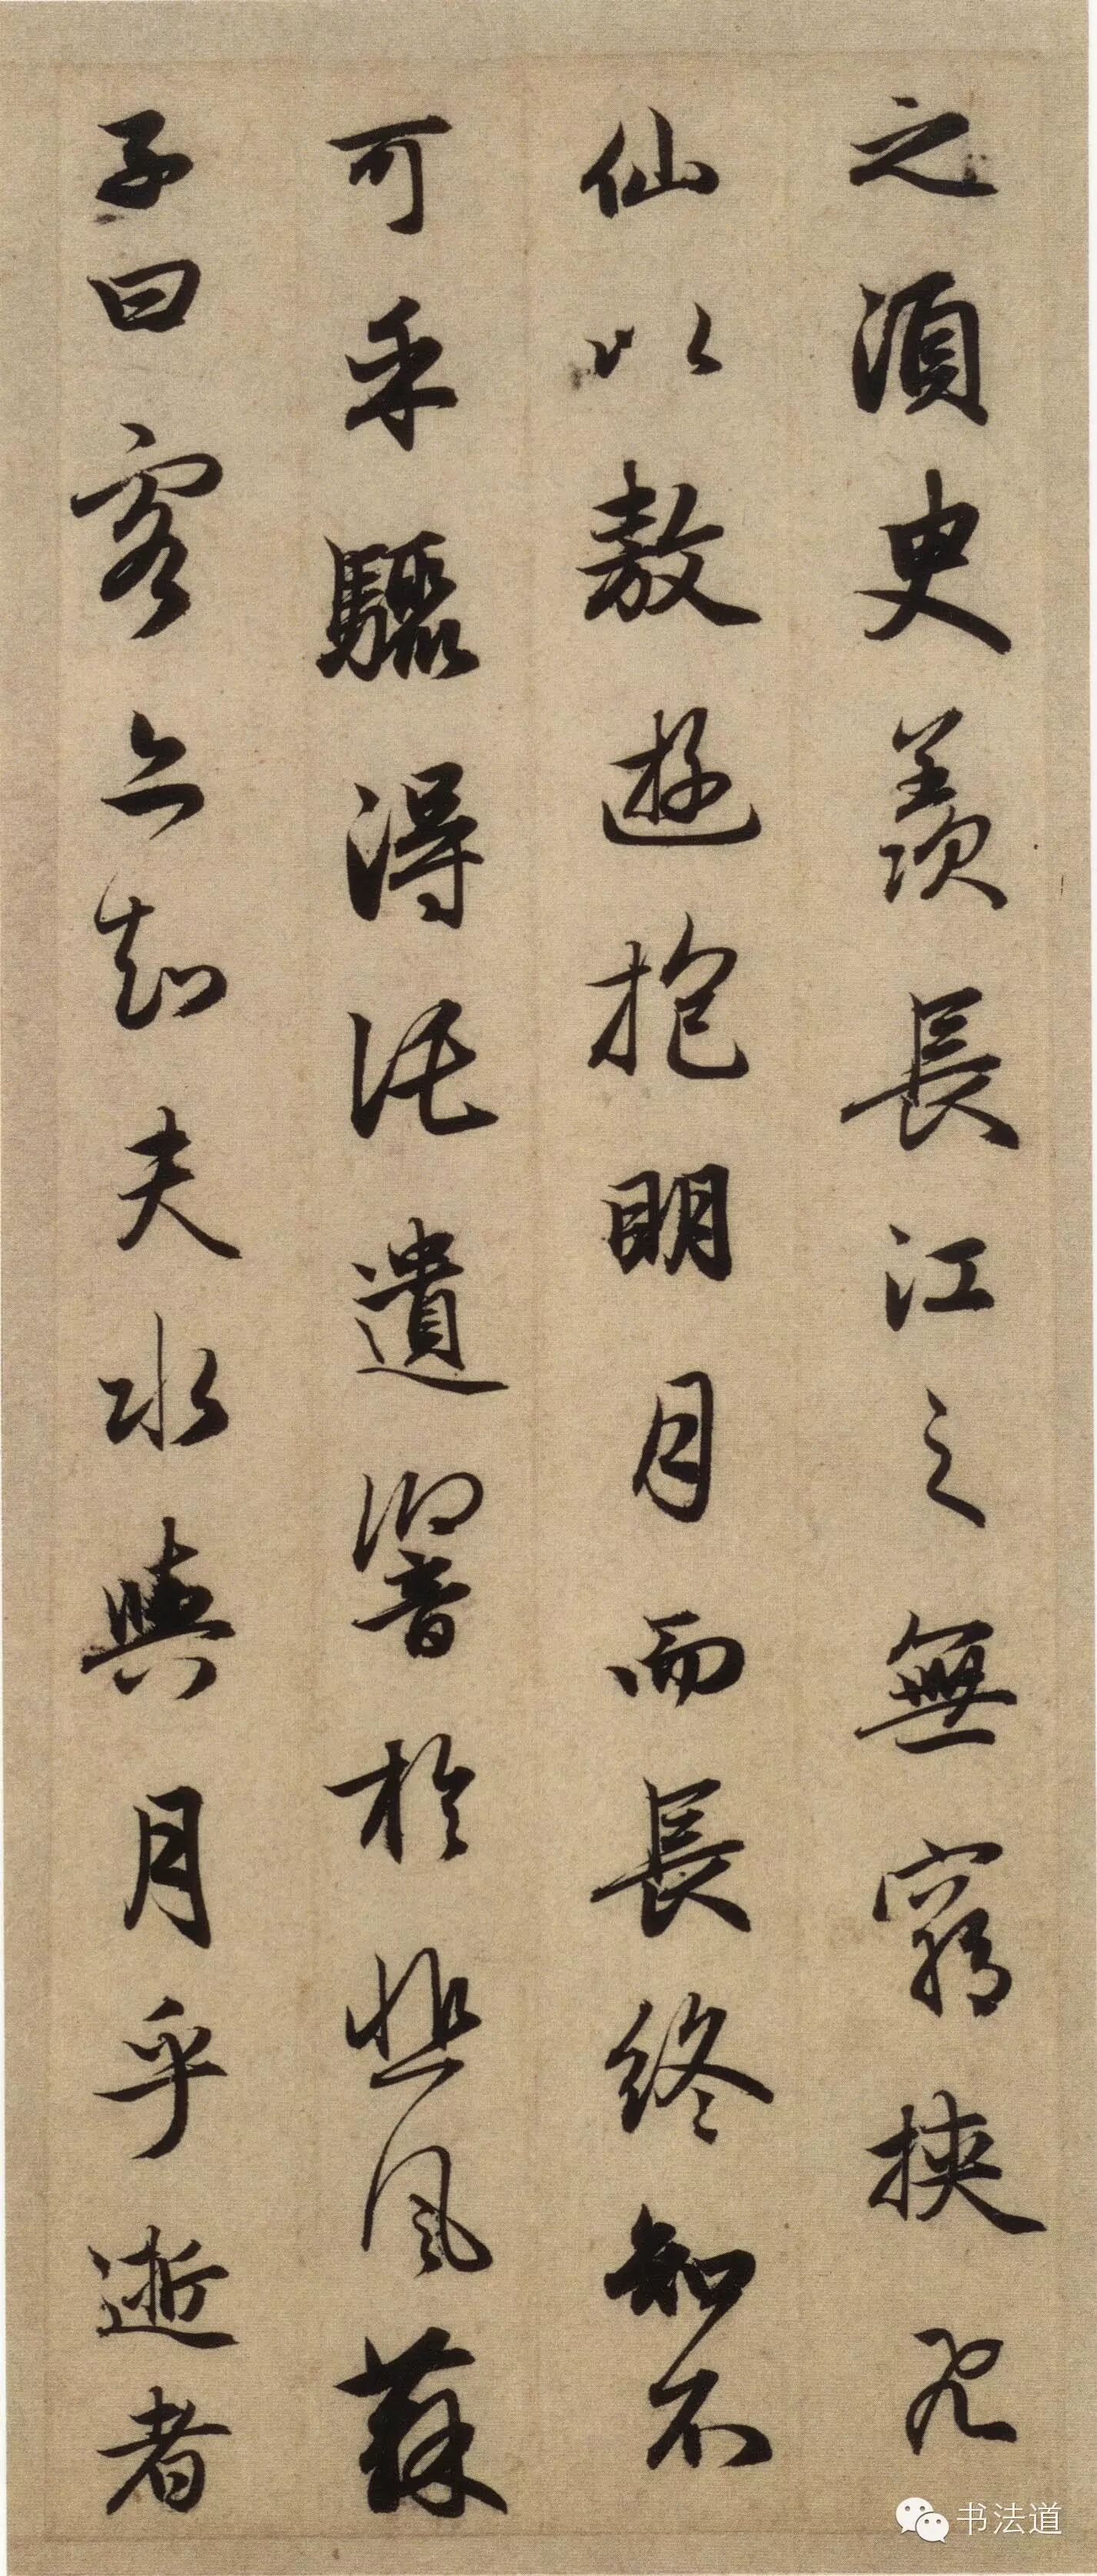 之須臾羨長江之無窮挾飛
仙以敖遊抱明月而長終知不
可乎驟得託遺響於悲風蘇
子曰客亦知夫水與月乎逝者
书法道